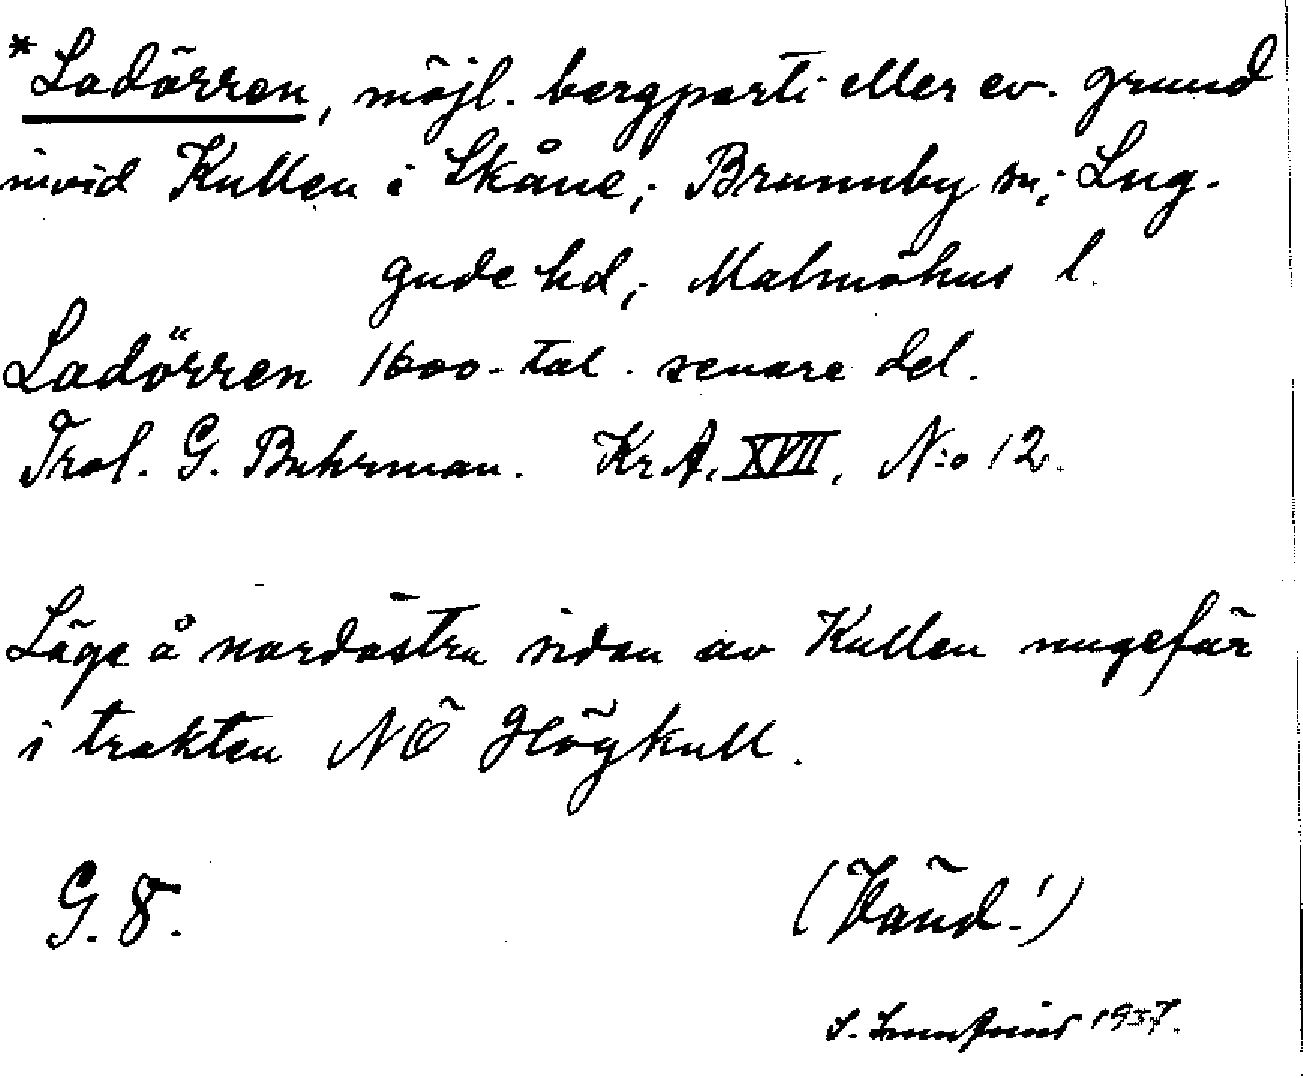 *Ladörren, möjl. bergparti eller ev. grund
invid Kullen i Skåne; Brunnby sn; Lug-
gude hd; Malmöhus l.
Ladörren 1600-tal. senare del.
Trol. G. Buhrman. KrA. XVII, N:o 12.
Läge å nordöstra sidan av Kullen ungefär
i trakten NÖ Högkull.
G. 8.
(Vänd!)
S. 1937.